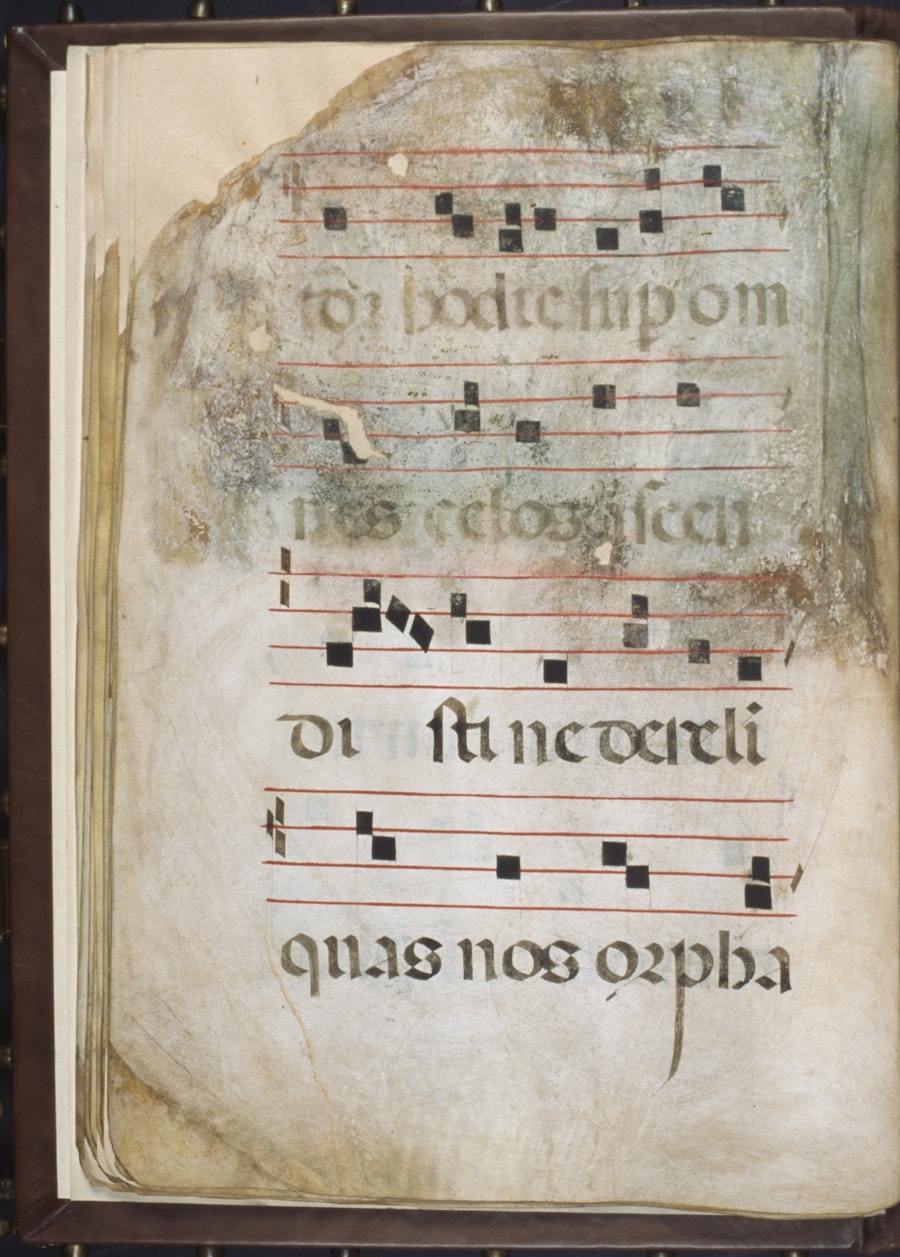 toꝛ hodie sup om
nes celos ascen
di sti ne dereli
quas nos orpha